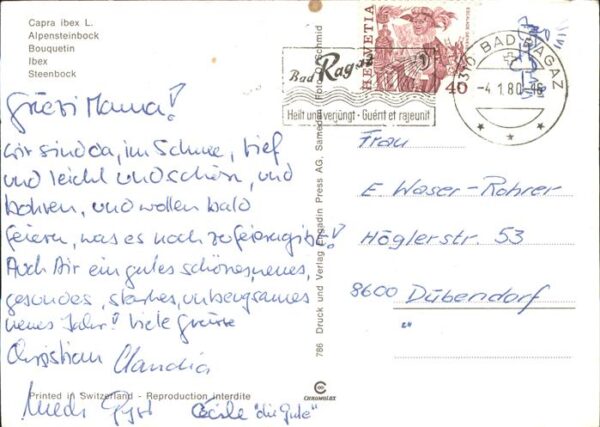 Capra ibex L.
Alpensteinbock
Bouquetin
Ibex
Steenbock
HELVETIA
40
Bad Ragaz
Heilt und verjüngt · Guérit et rajeunit
BAD RAGAZ
-4.1.80
Grüezi Mama!
wir sind da, im Schnee, tief
und leicht und schön, und
bohren, und wollen bald
feiern, was es noch zu feiern gibt!
Auch Dir ein gutes schönes, neues,
gesundes, starkes, unbeugsames
neues Jahr! Viele Grüsse
Christian Claudia
Cécile "die Gute"
Frau
E. Waser-Rohrer
Höglerstr. 53
8600 Dübendorf
786 Druck und Verlag Engadin Press AG, Samedan Foto O. Schmid
Printed in Switzerland - Reproduction interdite
CHROMOLUX